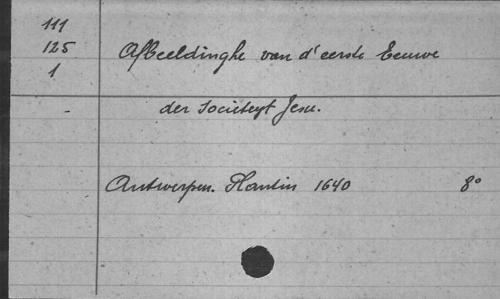 111
125
1
Afbeeldinghe van d'eerste Eeuwe
der Societeyt Jesu.
Antwerpen. Plantin 1640 8°